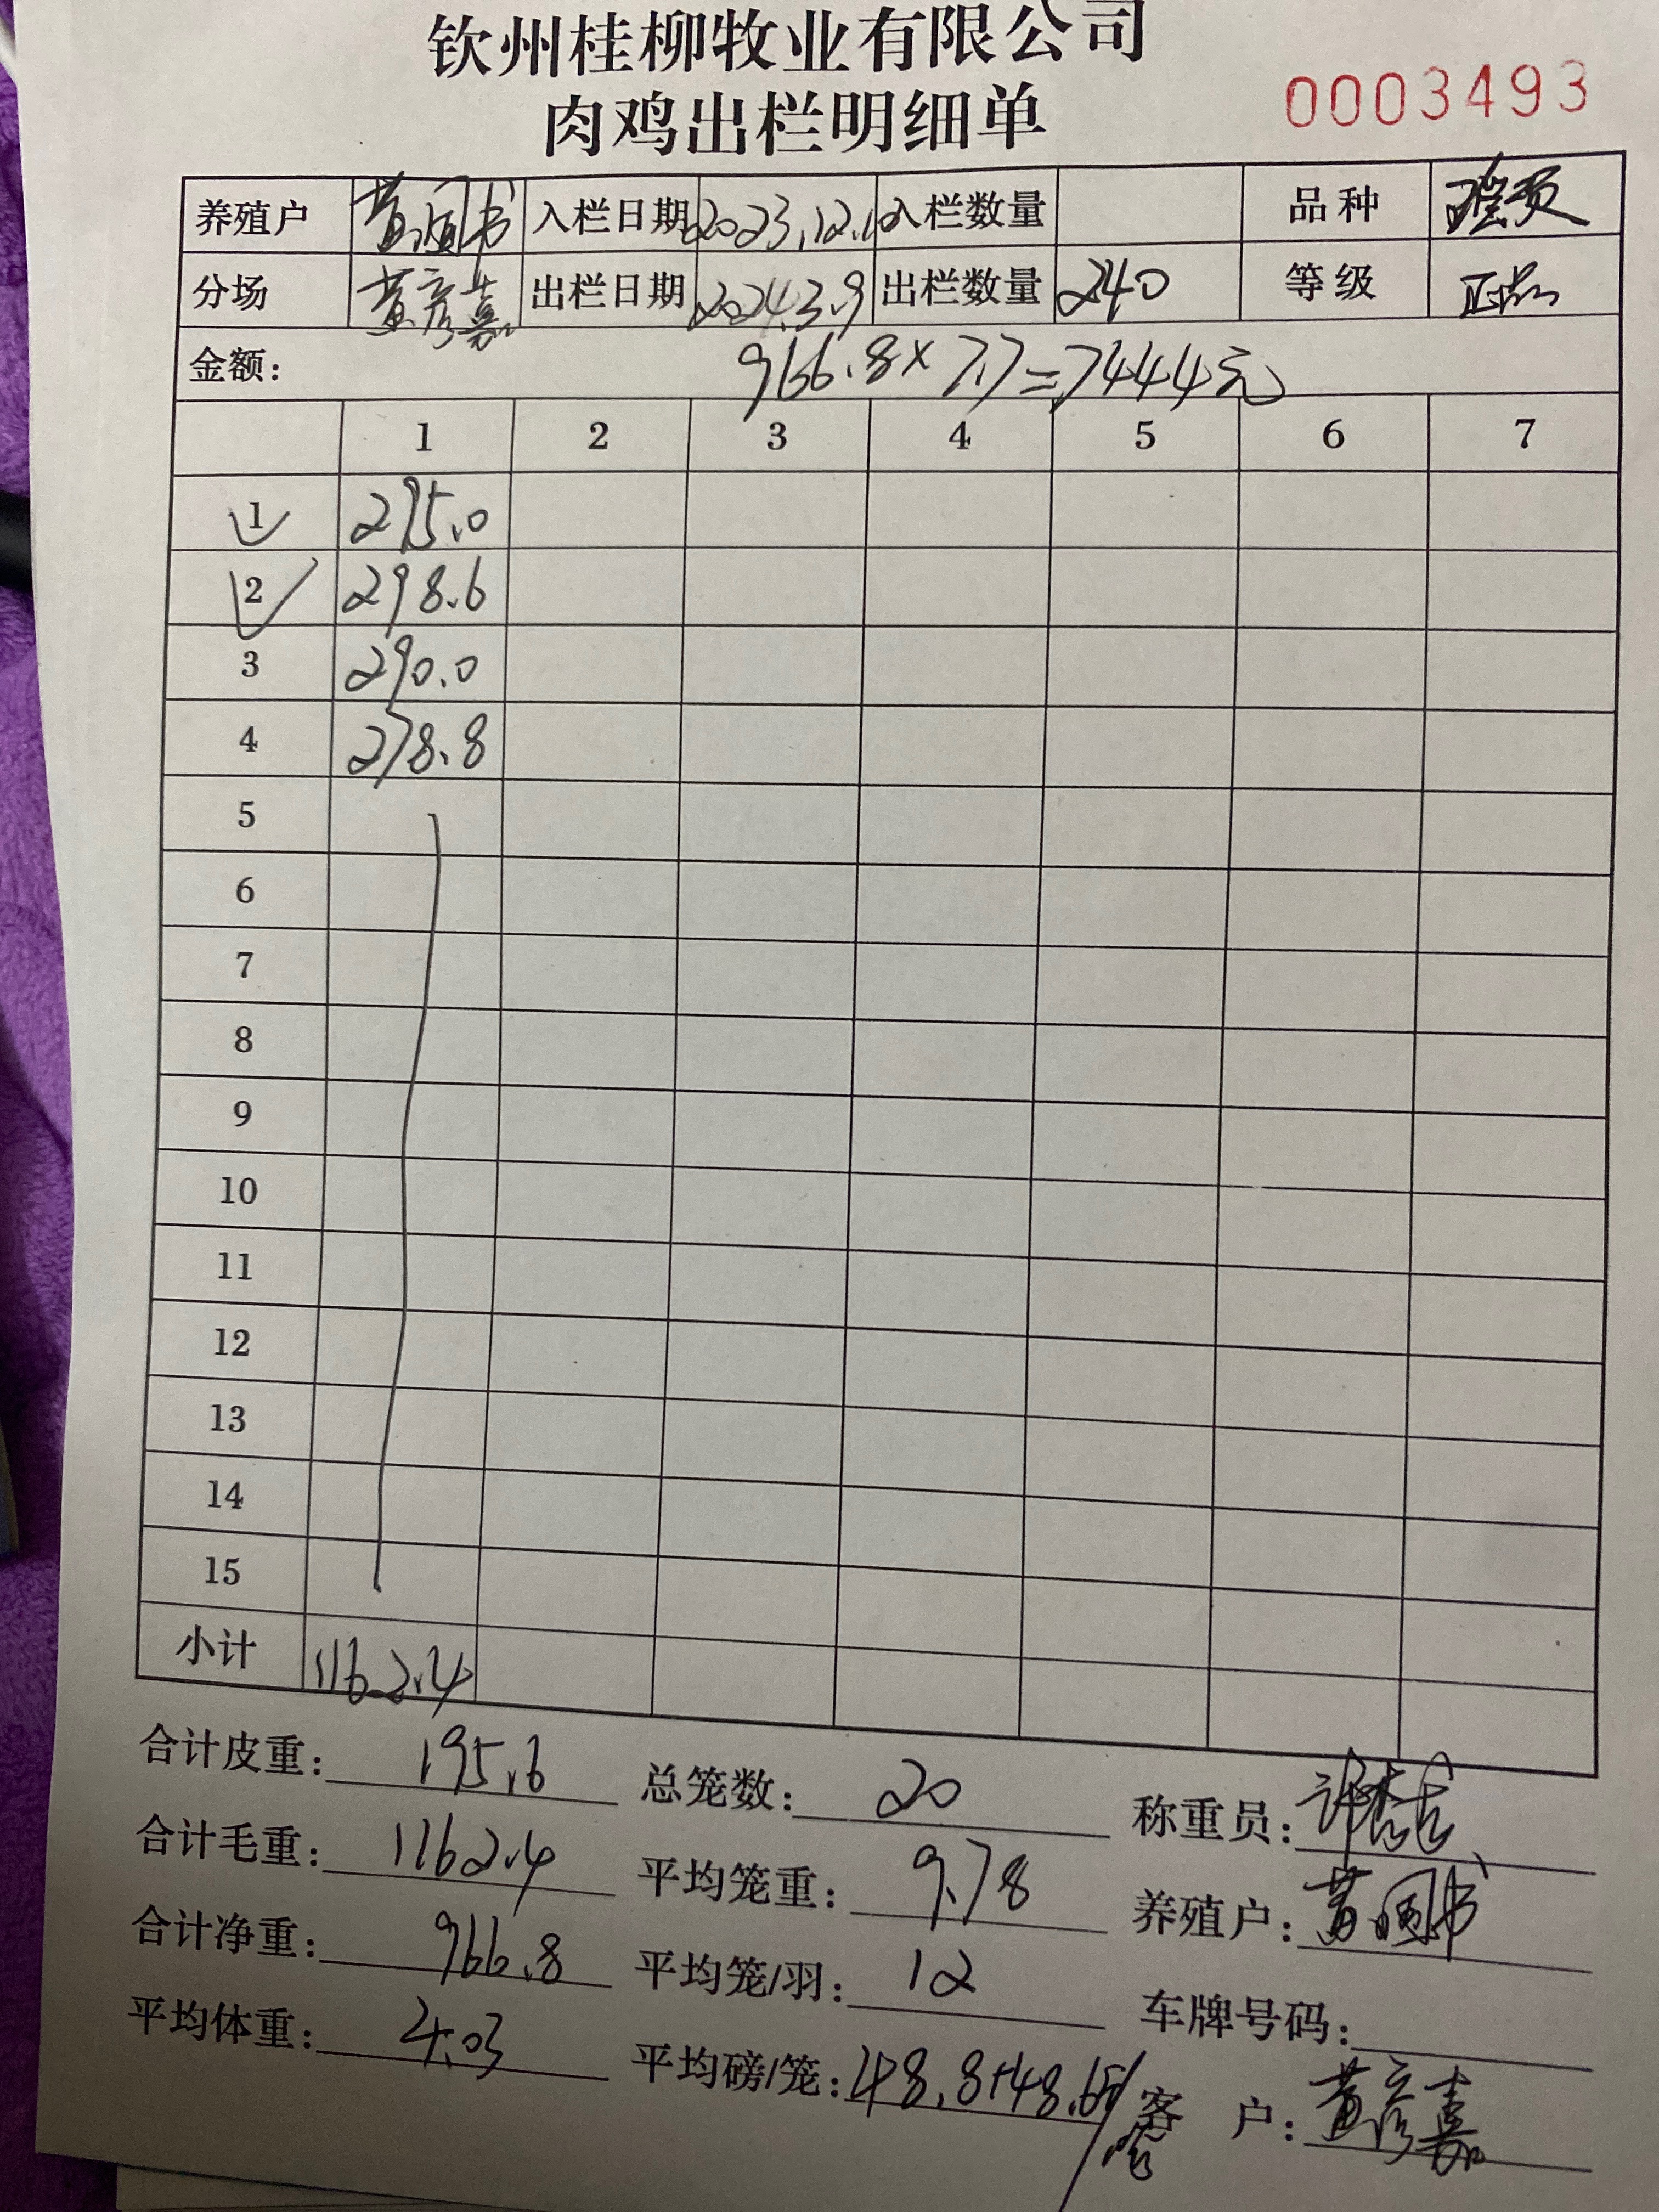 钦州桂柳牧业有限公司
肉鸡出栏明细单
0003493
养殖户 黄国书 入栏日期 2023.12.10 入栏数量 品种
分场 黄彦嘉 出栏日期 2024.3.9 出栏数量 240 等级 正品
金额: 966.8×7.7=7444元
1 2 3 4 5 6 7
1 295.0
2 298.6
3 290.0
4 278.8
5
6
7
8
9
10
11
12
13
14
15
小计 1162.4
合计皮重: 195.6 总笼数: 20 称重员:
合计毛重: 1162.4 平均笼重: 9.78 养殖户: 黄国书
合计净重: 966.8 平均笼/羽: 12 车牌号码:
平均体重: 4.03 平均磅/笼: 48.8+48.65/ 客 户: 黄彦嘉